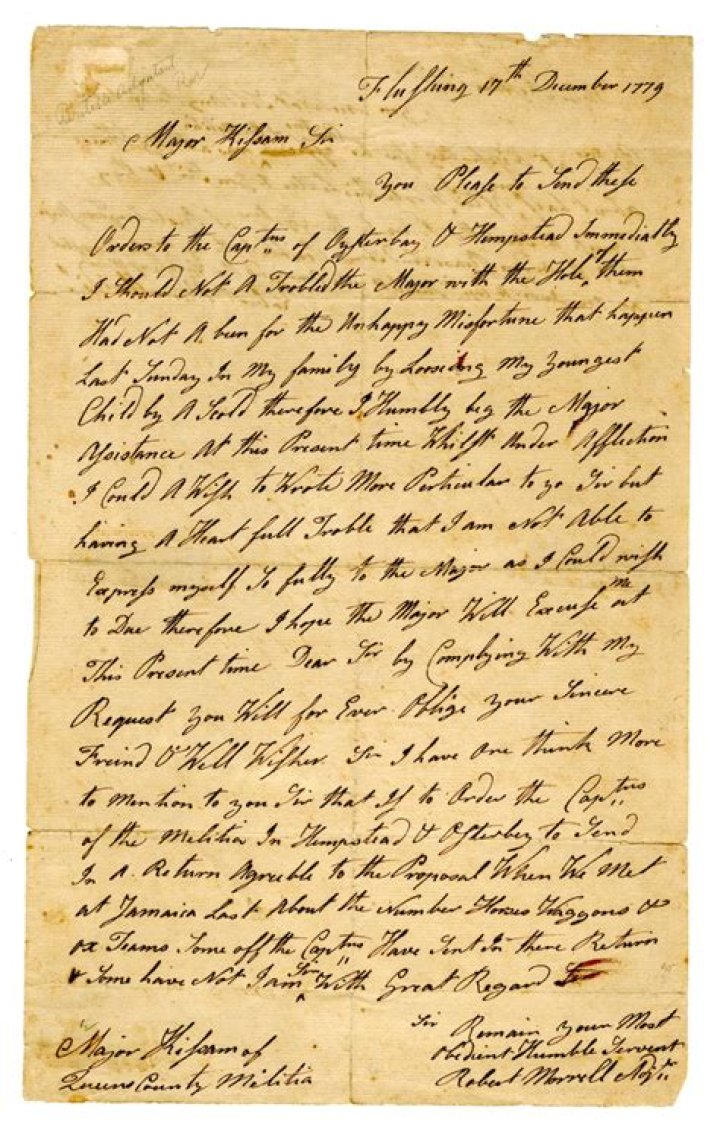 Flushing 17th December 1779
Major Kissam Sir
you Please to Send these
Orders to the Captns of Oysterbay & Hempstead Immedially
I Should Not A Trobled the Major with the Hole of them
Had Not A been for the Unhappy Misfortune that happen
Last Sunday In My family by Looseing My Youngest
Child by A Scold therefore I Humbly beg the Major
Assistance At this Present time Whilst Under Afflection
I Could A Wish to Wrote More Perticular to yo Sir but
having A Heart full Troble that I am Not Able to
Express myself So fully to the Major as I Could wish
to Due therefore I hope the Major Will Excuse me at
This Present time Dear Sir by Complying With My
Request you Will for Ever Oblige your Sincere
Freind & Well Wisher Sir I have One think More
to Mention to you Sir that If to Order the Captns
of the Melitia In Hempstead & Osterbey to Send
In A Return Agreeble to the Proposal When We Met
at Jamaica Last About the Number Horses Waggons &
ox Teams Some off the Captns Have Sent In there Return
& Some have Not I am Sir With Great Regard
Sir Remain your Most
Obedient Humble Servent
Robert Morrell Adjt
Major Kissam of
Queens County Militia